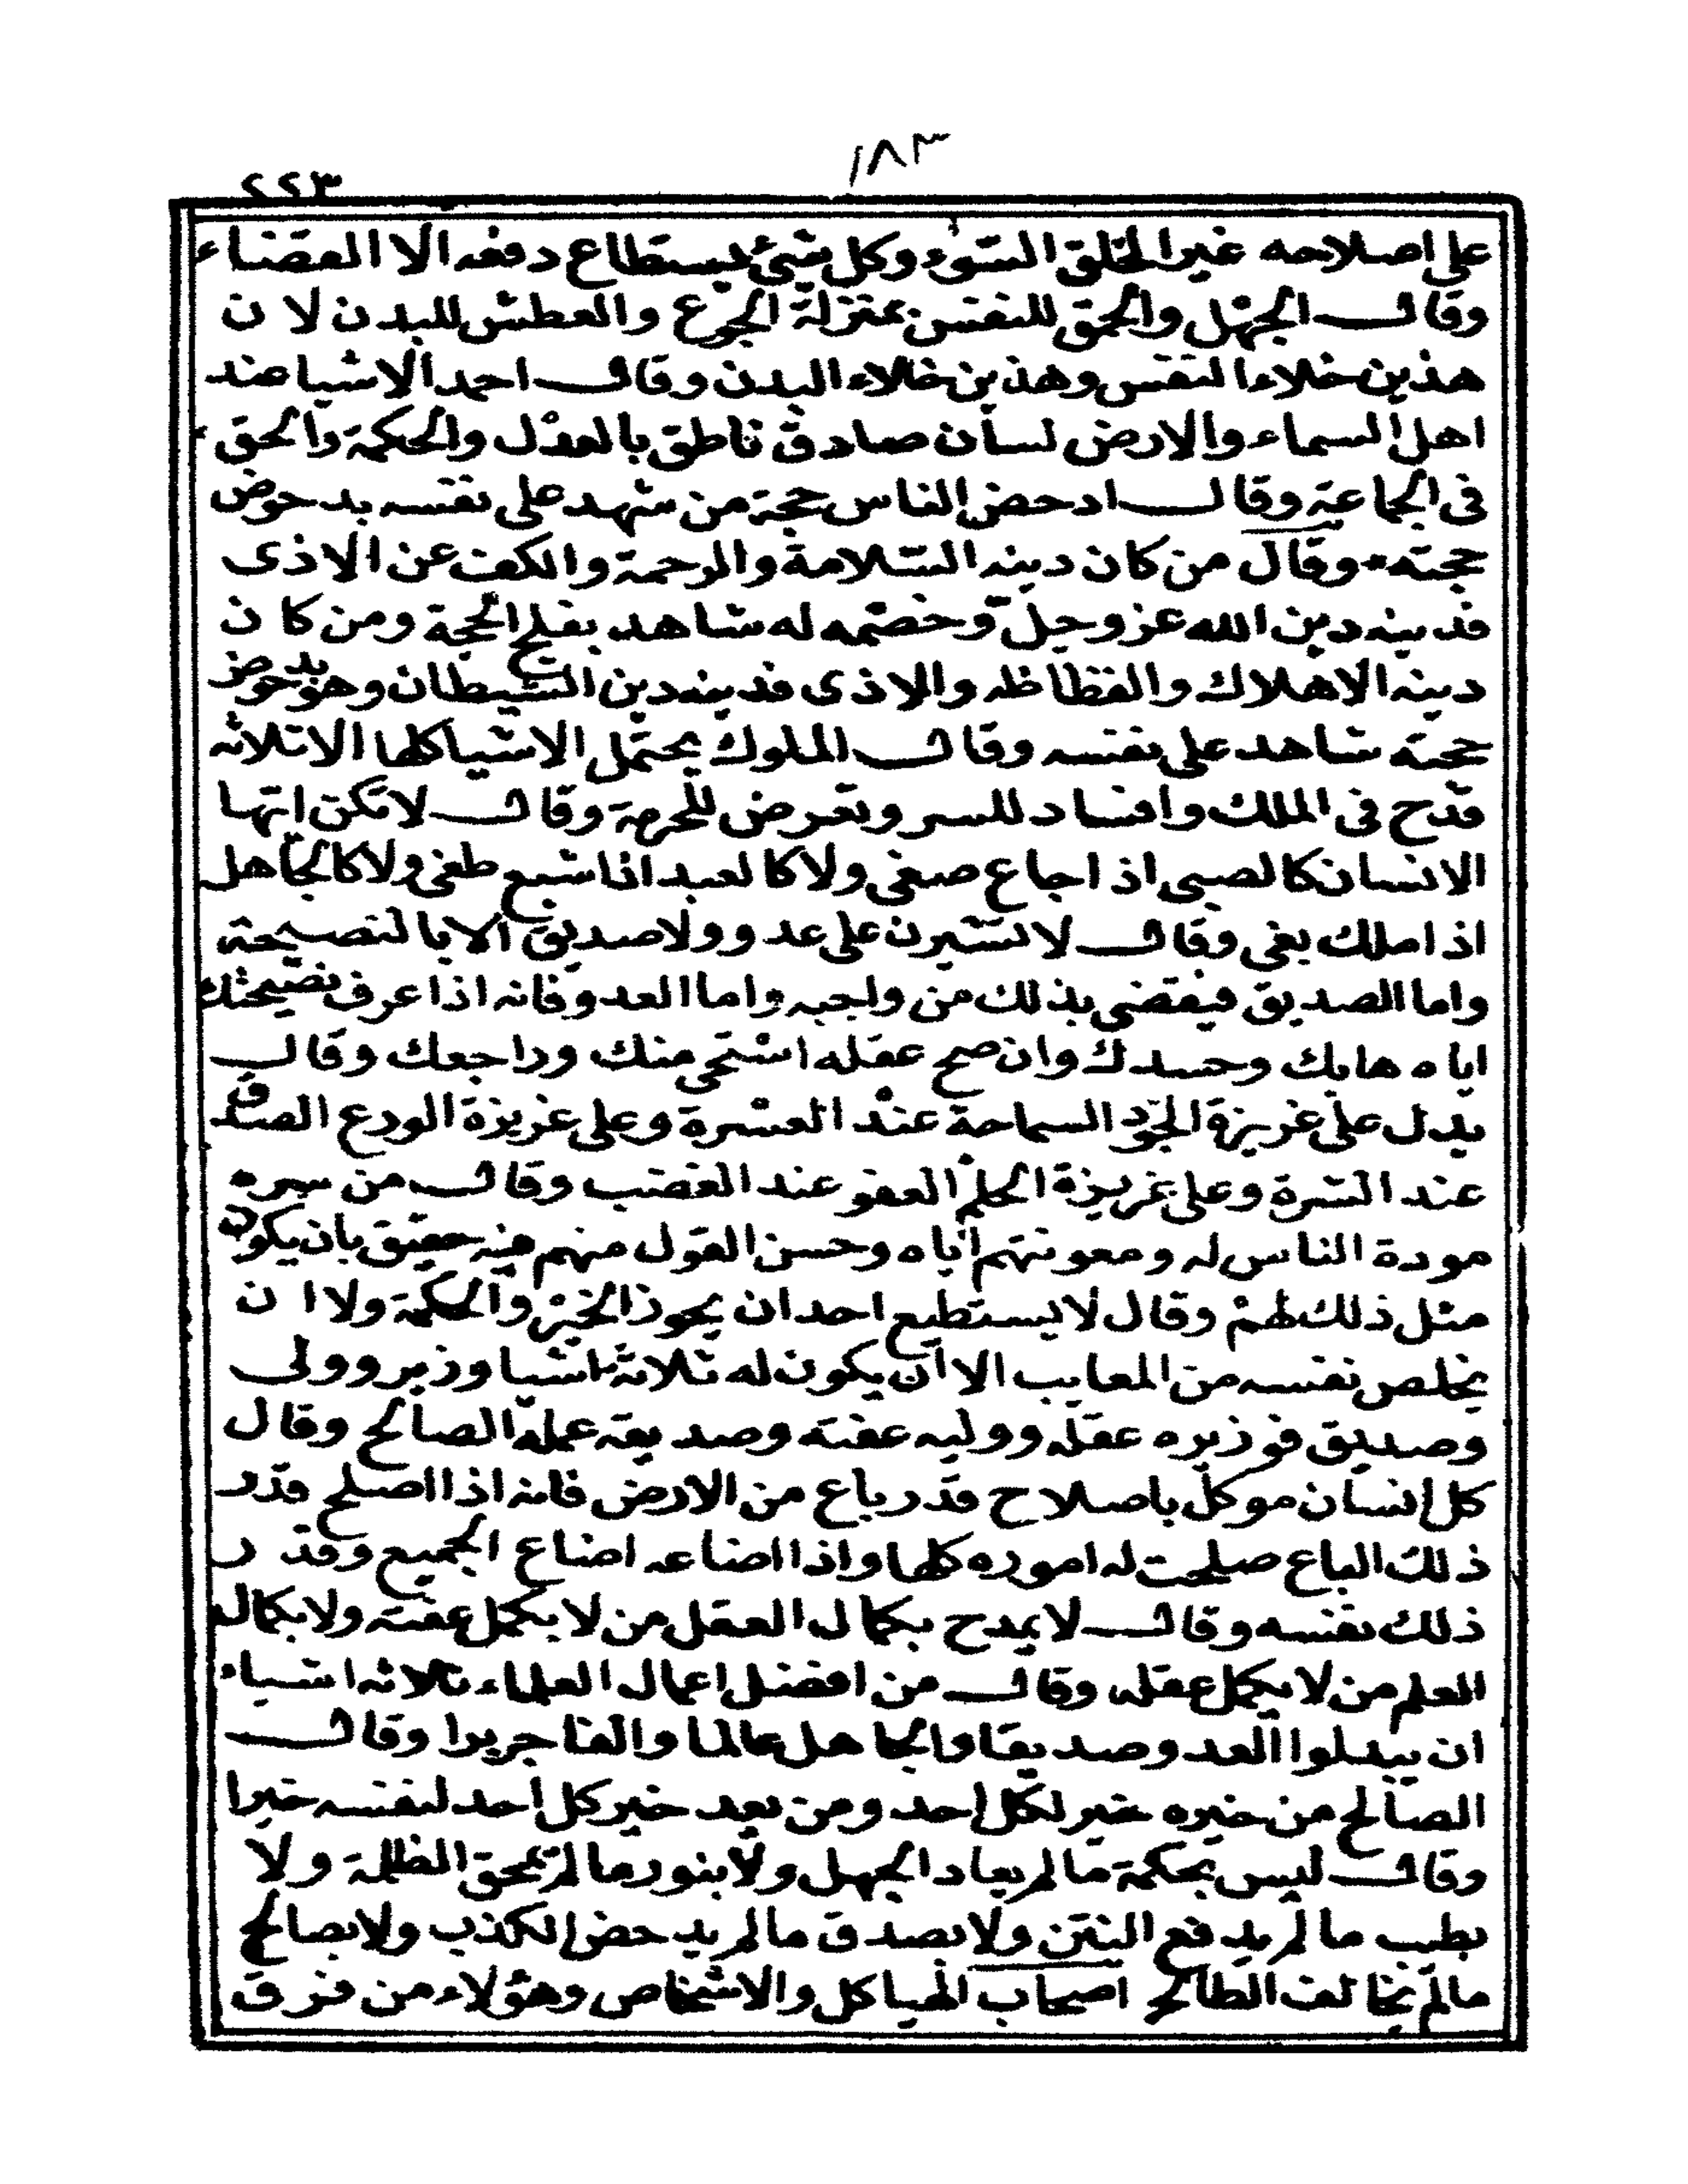 ١٨٣
٢٢٣
على اصلاحه غير الخلق السوء وكل شئ يستطاع دفعه الا القضاء
وقال الجهل والحمق للنفس بمنزلة الجوع والعطش للبدن لان
هذين خلاء النفس وهذين خلاء البدن وقال احمد الاشيا عند
اهل السماء والارض لسان صادق ناطق بالعدل والحكمة والحق
فى الجماعة وقال ادحض الناس حجة من شهد على نفسه بدحوض
حجته وقال من كان دينه السلامة والرحمة والكف عن الاذى
فدينه دين الله عز وجل وخصمه له شاهد بفلج الحجة ومن كان
دينه الاهلاك والفظاظه والاذى فدينه دين الشيطان وهو بدحوض
حجته شاهد على نفسه وقال الملوك يحتمل الاشيا كلها الا ثلاثه
قدح فى الملك وافساد للسر وتعرض للحرمة وقال لا تكن ايها
الانسان كالصبى اذ اجاع صغى ولا كالعبد اذا شبع طغى ولا كالجاهل
اذ املك بغى وقال لا تشيرن على عدو ولا صديق الا بالنصيحة
واما الصديق فيقضى بذلك من واجبه واما العدو فانه اذا عرف نصيحتك
اياه هابك وحسدك وان صح عقله استحى منك وراجعك وقال
يدل على غريزة الجود السماحة عند العسرة وعلى غريزة الورع الصدق
عند الشرة وعلى غريزة الحلم العفو عند الغضب وقال من سره
مودة الناس له ومعونتهم اياه وحسن القول منهم فيه حقيق بان يكون
مثل ذلك لهم وقال لا يستطيع احد ان يحوز الخير والحكمة ولا ان
يخلص نفسه من المعايب الا ان يكون له ثلاثة اشيا وزير وولى
وصديق فوزيره عقله ووليه عفته وصديقه عمله الصالح وقال
كل انسان موكل باصلاح قدر باع من الارض فانه اذا اصلح قدر
ذلك الباع صلحت له اموره كلها واذا اضاعه اضاع الجميع وقدر
ذلك نفسه وقال لا يمدح بكمال العقل من لا يكمل عفته ولا بكمال
العلم من لا يكمل عقله وقال من افضل اعمال العلماء ثلاثه اشياء
ان يبدلوا العدو صديقا والجاهل عالما والفاجر برا وقال
الصالح من خيره خير لكل احد ومن يعد خير كل احد لنفسه خيرا
وقال ليس بحكمة ما لم يعاد الجهل ولا بنور ما لم يمحق الظلمة ولا
بطيب ما لم يدفع النتن ولا بصدق ما لم يدحض الكذب ولا بصالح
مالم يخالف الطالح اصحاب الهياكل والاشخاص وهؤلاء من فرق